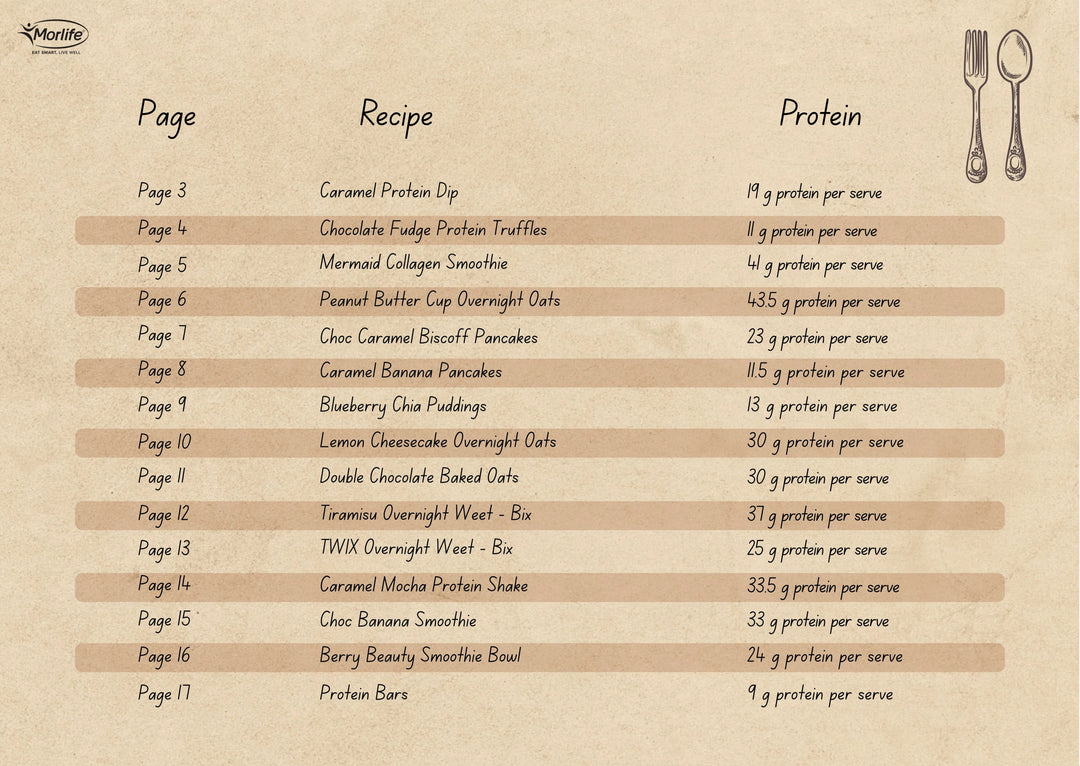 Morlife
EAT SMART, LIVE WELL
Page Recipe Protein
Page 3 Caramel Protein Dip 19 g protein per serve
Page 4 Chocolate Fudge Protein Truffles 11 g protein per serve
Page 5 Mermaid Collagen Smoothie 41 g protein per serve
Page 6 Peanut Butter Cup Overnight Oats 43.5 g protein per serve
Page 7 Choc Caramel Biscoff Pancakes 23 g protein per serve
Page 8 Caramel Banana Pancakes 11.5 g protein per serve
Page 9 Blueberry Chia Puddings 13 g protein per serve
Page 10 Lemon Cheesecake Overnight Oats 30 g protein per serve
Page 11 Double Chocolate Baked Oats 30 g protein per serve
Page 12 Tiramisu Overnight Weet - Bix 37 g protein per serve
Page 13 TWIX Overnight Weet - Bix 25 g protein per serve
Page 14 Caramel Mocha Protein Shake 33.5 g protein per serve
Page 15 Choc Banana Smoothie 33 g protein per serve
Page 16 Berry Beauty Smoothie Bowl 24 g protein per serve
Page 17 Protein Bars 9 g protein per serve